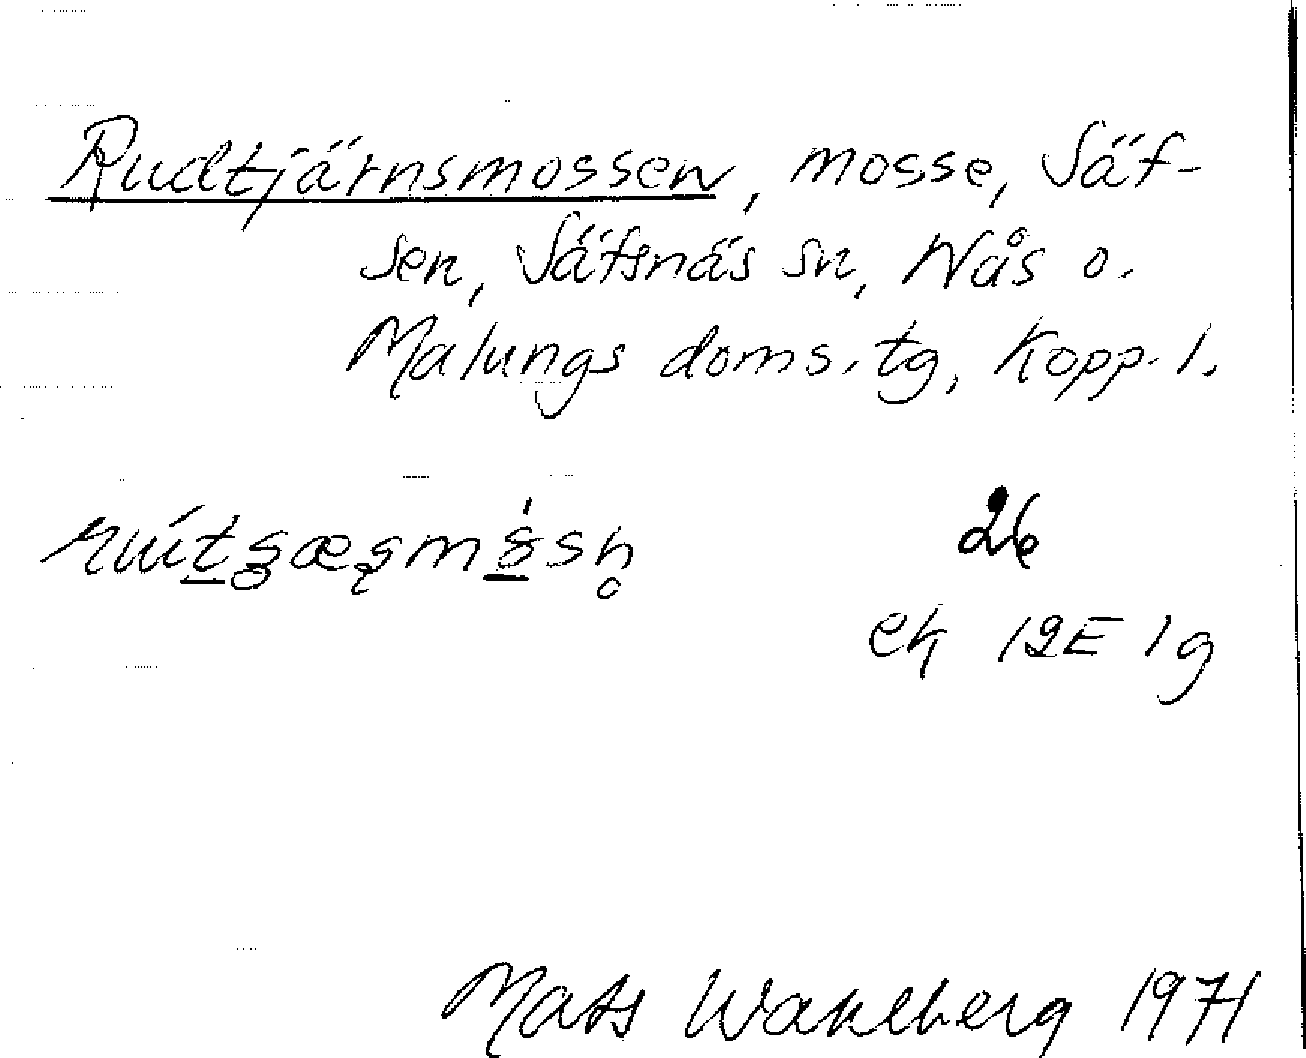 Rudtjärnsmossen, mosse, Säf-
sen, Säfsnäs sn, Nås o.
Malungs doms. tg, Kopp. l.
26
ek 12E 1g
Mats Wahlberg 1971